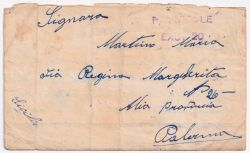 Signora
Martino Maria
Via Regina Margherita
N 26
Alia Provincia
Palermo
Sicilia